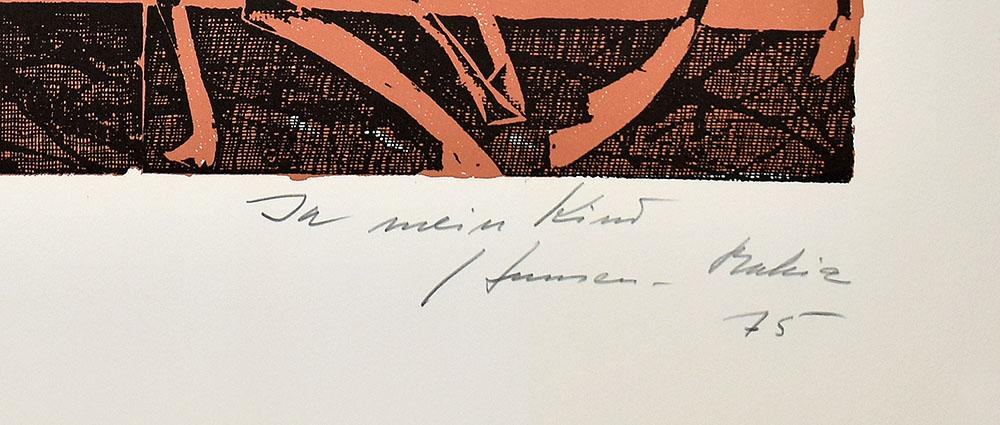 Ja mein Kind
Hansen-Bahia
75